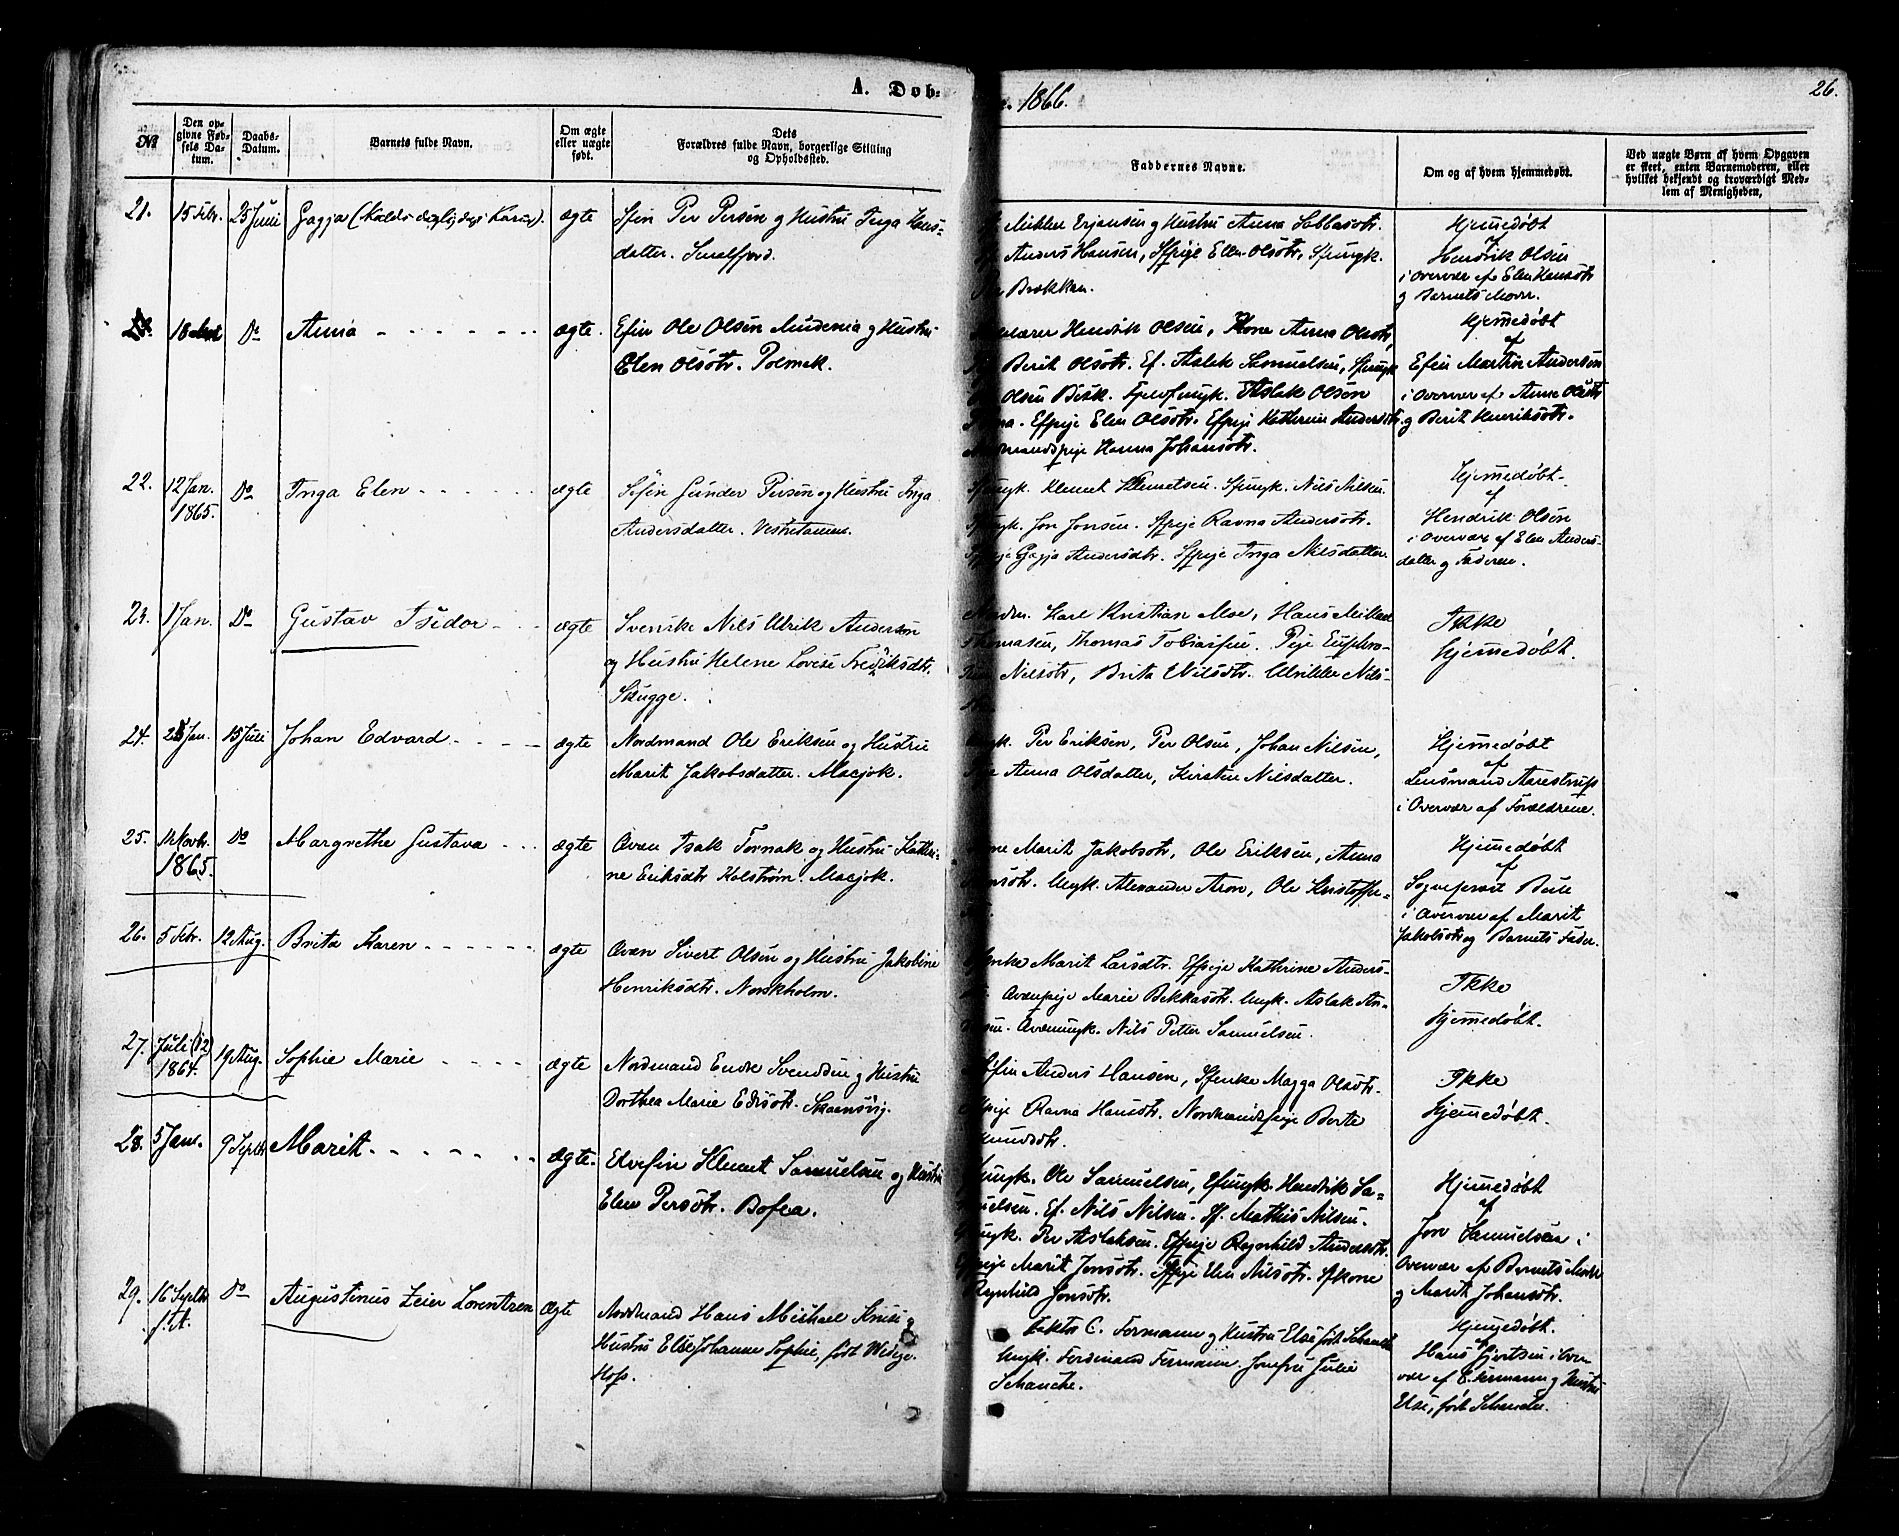 A. Døb-
e. 1866.
26.
No
Den opgivne Fødsels Datum.
Daabs-Datum.
Barnets fulde Navn.
Om ægte eller uægte født.
Dets Forældres fulde Navn, borgerlige Stilling og Opholdssted.
Faddernes Navne.
Om og af hvem hjemmedøbt.
Ved uægte Børn af hvem Opgaven
er skeet, enten Barnemoderen, eller
hvilket bekjendt og troværdigt Med-
lem af Menigheden,
21. 15 Febr. 25 Juni Gagja (kaldes daglig dags Karen). ægte Sfin Per Persen og Hustru Inga Hans-
datter. Smalfjord.
Mikkel Erjansen og Hustru Anna Sabbasdtr.
Anders Hansen, Sfpige Ellen Olsdtr, Sfungk.
Brækken.
Hjemmedøbt
af
Hendrik Olsen
i Overvær af Elen Hansdtr
og Barnets Moder.
18 Do Anna ægte. Efin Ole Olsen Audenia og Hustru
Elen Olsdtr. Polmak.
Hendrik Olsen, Kone Anna Olsdtr,
Berit Olsdtr. Ef. Aslak Samuelsen, Sfungk
Olsen Bisk. Fjelfungk. Aslak Olsen
Efpige Elen Olsdtr. Efpige Kathrine Andersdtr.
mandspige Hanna Johansdtr.
Hjemmedøbt
af
Efin Martin Andersen
i Overvær af Anna Olsdtr
og Berit Henriksdtr.
22. 12 Jan. 1865. Do Inga Elen ægte Søfin Gunder Persen og Hustru Inga
Andersdatter. Vestertanen.
Sfungk. Klemet Klemetsen. Sfungk. Nils Nilsen.
Sfungk. Jon Jonsen. Sfpige Ravna Andersdtr.
Sfpige Gagja Andersdtr. Sfpige Inga Nilsdatter.
Hjemmedøbt
af
Hendrik Olsen
i Overvær af Elen Anders-
datter og Faderen.
23. 1 Jan. Do Gustav Isidor ægte Svenske Nils Ulrik Andersen
og Hustru Helene Lovise Fredriksdtr.
Skugge.
Karl Kristian Moe, Hans Mikkel
Thomasen, Thomas Tobiassen. Pige Euphro-
Nilsdtr, Brita Nilsdtr. Ulrikke Nils-
Ikke
Hjemmedøbt.
24. Jan. 15 Juli Johan Edvard ægte Nordmand Ole Eriksen og Hustru
Marit Jakobsdatter. Masjok.
Ungk. Per Eriksen, Per Olsen, Johan Nilsen,
Anna Olsdatter, Kirsten Nilsdatter.
Hjemmedøbt
af
Lensmand Aarestrup
i Overvær af Forældrene.
25. Novbr. 1865. Do Margrethe Gustava ægte Qvæn Isak Tornak og Hustru Kathri-
ne Eriksdtr Kolstrøm. Masjok.
Marit Jakobsdtr, Ole Eriksen, Anna
Ungk. Alexander Aron, Ole Kristoffe-
Hjemmedøbt
af
Sognepræst
i Overvær af Marit
Jakobsdtr og Barnets Fader.
26. 5 Febr. 12 Aug. Brita Karen ægte Qvæn Sivert Olsen og Hustru Jakobine
Henriksdtr. Norskholm.
Marit Larsdtr. Efpige Kathrine Anders-
Qvænpige Marie Bekkasdtr. Ungk. Aslak An-
Qvænungk. Nils Petter Samuelsen.
Ikke
Hjemmedøbt.
27. Juli (12) 1864. 19 Aug. Sophie Marie ægte Nordmand Enok Svendsen og Hustru
Dorthea Marie Edisdtr. Skaansvig.
Anders Hansen, Sfenke Magga Olsdtr.
Ravna Hansdtr. Nordmandspige Berte
Ikke
Hjemmedøbt.
28. 5 Jan. 9 Septbr Marit. ægte. Elvefin Klemet Samuelsen og Hustru
Elen Persdtr. Bofea.
Ungk. Ole Samuelsen, Efungk. Hendrik Sa-
muelsen. Ef. Nils Nilsen. Sf. Mathis Nilsen.
Per Aslaksen. Efpige Ragnhild Andersdtr.
Efpige Marit Jonsdtr. Sfpige Elen Nilsdtr. Sfkone
Ragnhild Jonsdtr.
Hjemmedøbt
af
Jon Samuelsen i
Overvær af Barnets Moder
og Marit Johansdtr.
29. 16 Septbr f.A. Do Augustinus Zeier Lorentzen ægte Nordmand Hans Michael Kruse og
Hustru Else Johanna Sophie, født Wedege.
Hops.
C. Formann og Hustru Else født Schanche
Ungk. Ferdinand Formann. Jomfru Julie
Schanche.
Hjemmedøbt.
af
Hans Gjertsen i Over-
vær af C. Formann og Hustru
Else, født Schanche.